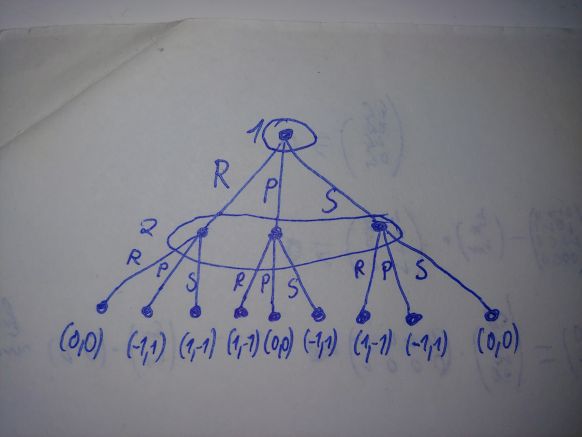 1
R P S
2
R P S R P S R P S
(0,0) (-1,1) (1,-1) (1,-1) (0,0) (-1,1) (1,-1) (-1,1) (0,0)